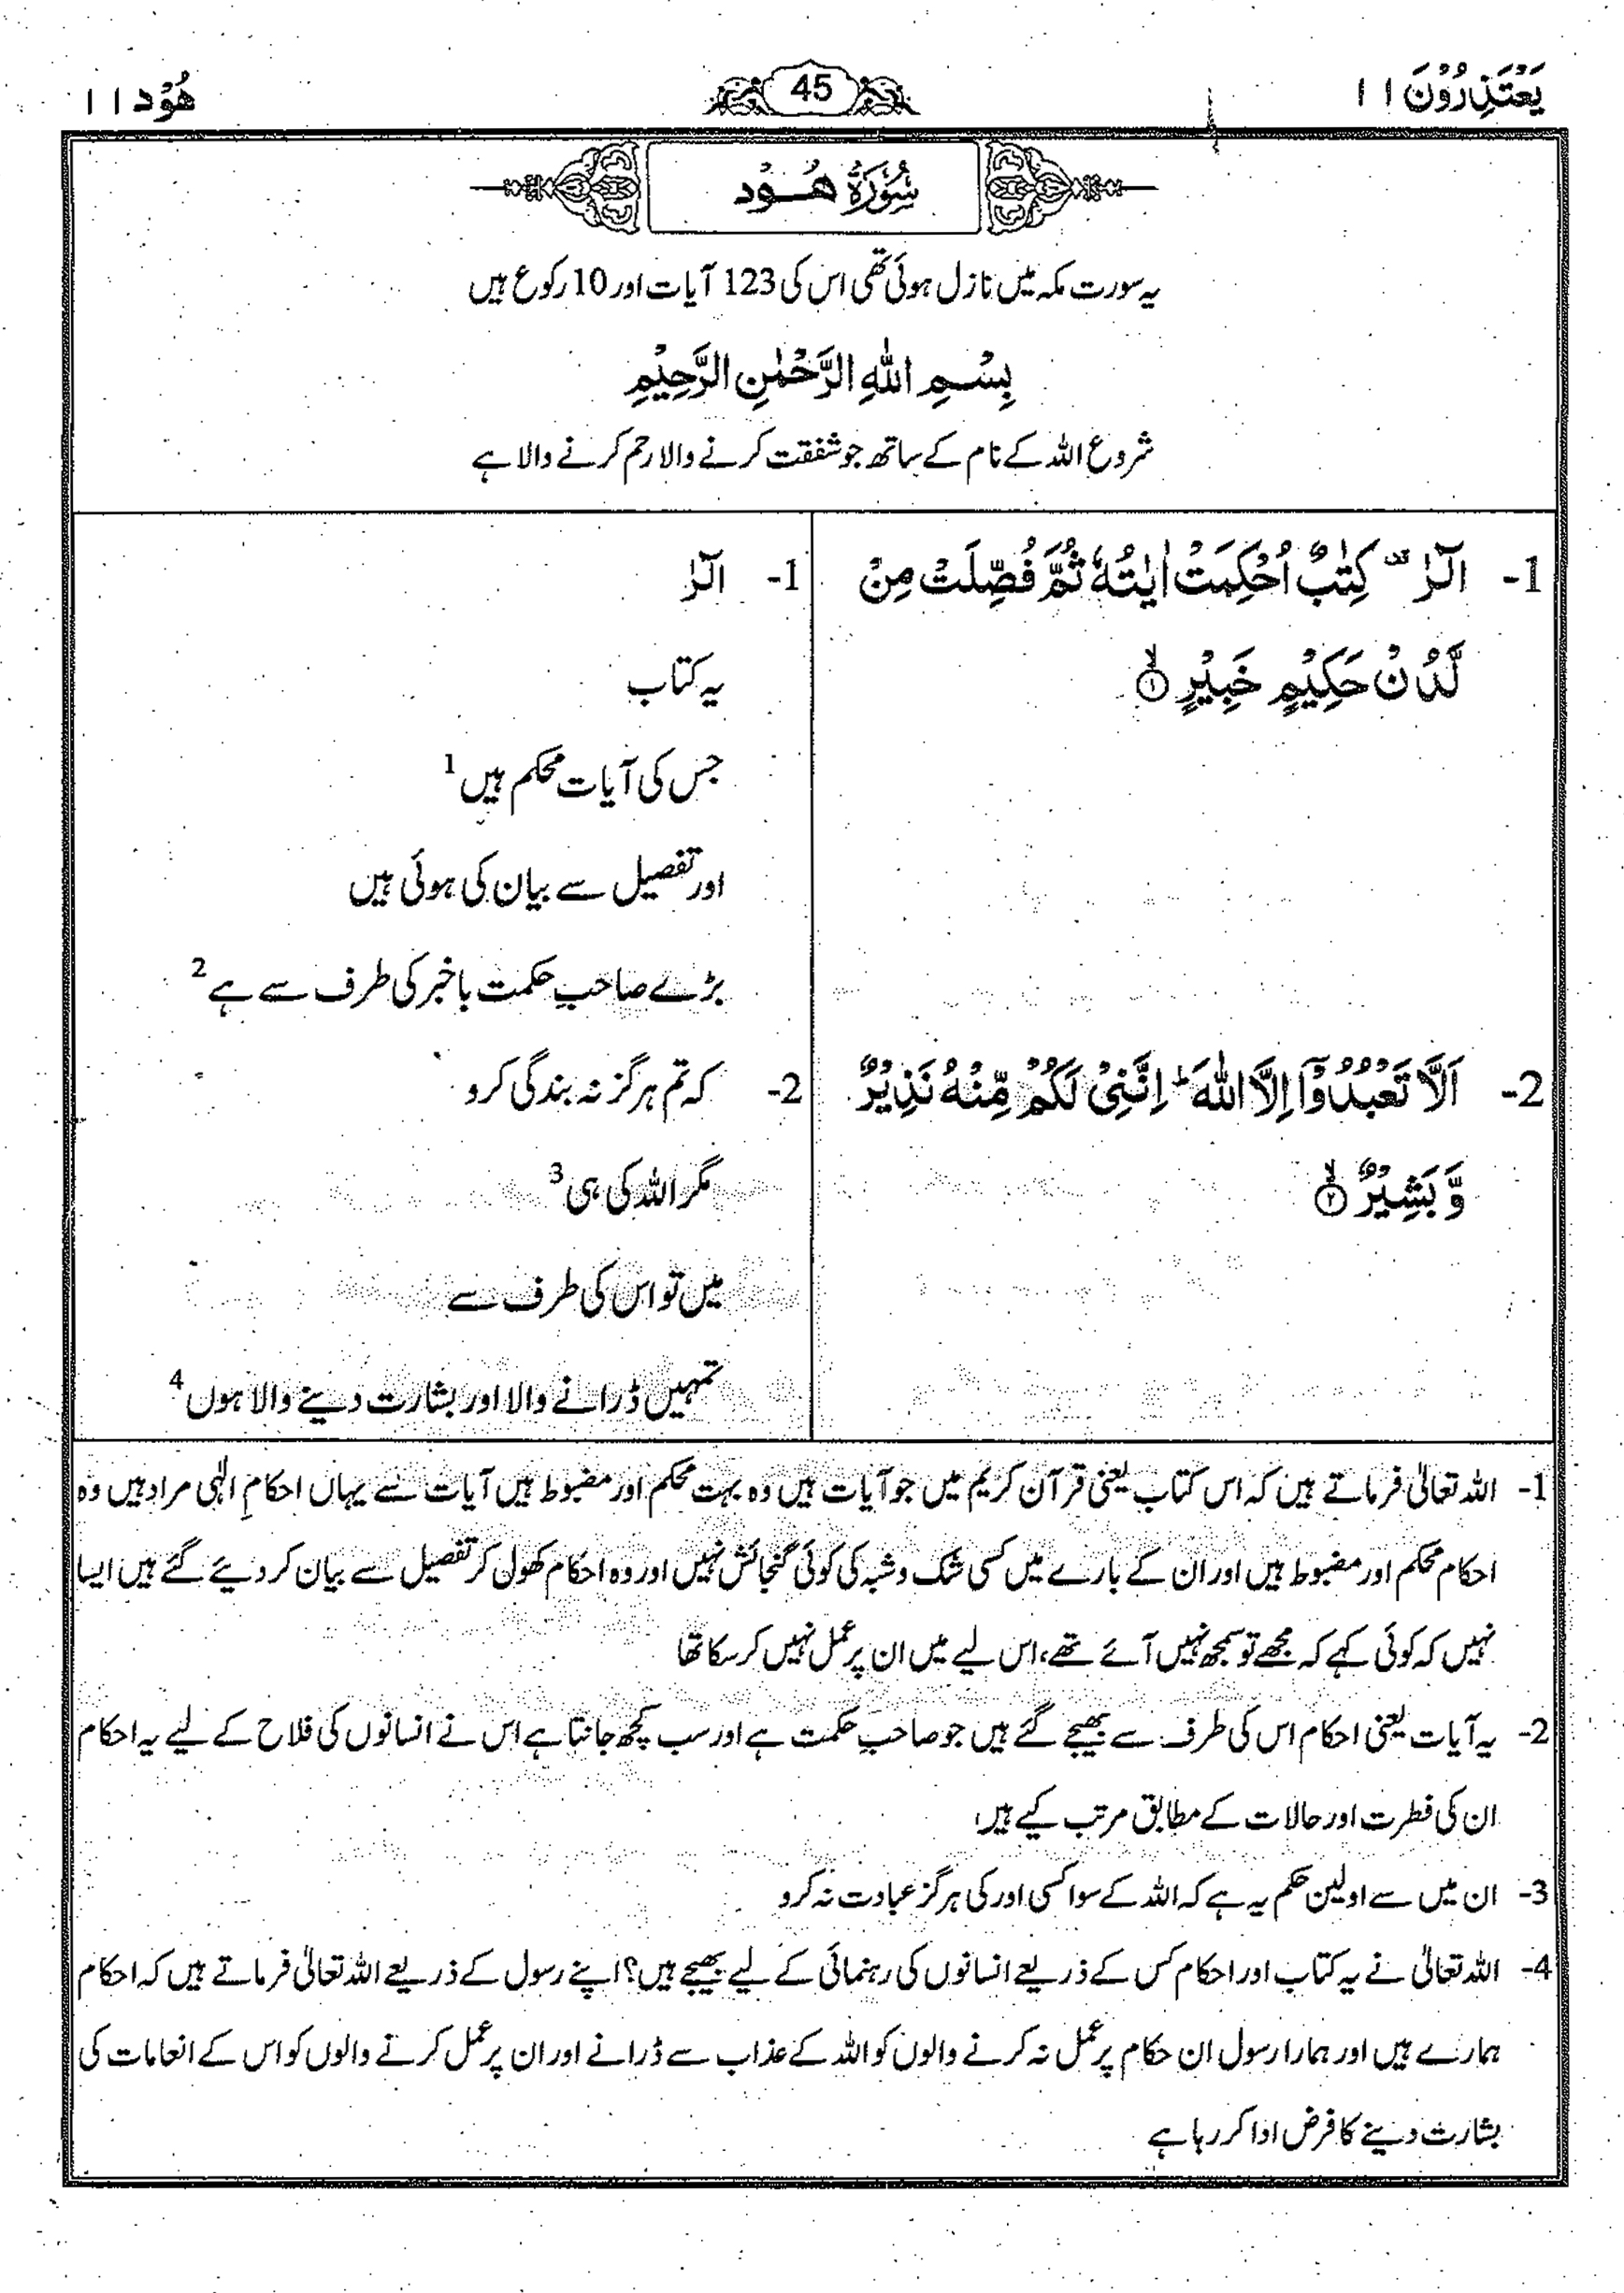 یَعْتَذِرُوْنَ ۱۱
45
هُوْد ۱۱
سُوْرَةُ هُوْد
یہ سورت مکہ میں نازل ہوئی تھی اس کی 123 آیات اور 10 رکوع ہیں
بِسْمِ اللّٰهِ الرَّحْمٰنِ الرَّحِیْمِ
شروع اللہ کے نام کے ساتھ جو شفقت کرنے والا رحم کرنے والا ہے
1- الٓرٰ ۫ كِتٰبٌ اُحْكِمَتْ اٰیٰتُهٗ ثُمَّ فُصِّلَتْ مِنْ
لَّدُنْ حَكِیْمٍ خَبِیْرٍ ۙ۝۱
2- اَلَّا تَعْبُدُوْۤا اِلَّا اللّٰهَ ؕ اِنَّنِیْ لَكُمْ مِّنْهُ نَذِیْرٌ
وَّ بَشِیْرٌ ۙ۝۲
1- الٓرٰ
یہ کتاب
جس کی آیات محکم ہیں 1
اور تفصیل سے بیان کی ہوئی ہیں
بڑے صاحبِ حکمت باخبر کی طرف سے ہے 2
2- کہ تم ہرگز نہ بندگی کرو
مگر اللہ کی ہی 3
میں تو اس کی طرف سے
تمہیں ڈرانے والا اور بشارت دینے والا ہوں 4
1- اللہ تعالیٰ فرماتے ہیں کہ اس کتاب یعنی قرآن کریم میں جو آیات ہیں وہ بہت محکم اور مضبوط ہیں آیات سے یہاں احکامِ الٰہی مراد ہیں وہ
احکام محکم اور مضبوط ہیں اور ان کے بارے میں کسی شک و شبہ کی کوئی گنجائش نہیں اور وہ احکام کھول کر تفصیل سے بیان کر دیئے گئے ہیں ایسا
نہیں کہ کوئی کہے کہ مجھے تو سمجھ نہیں آئے تھے، اس لیے میں ان پر عمل نہیں کر سکا تھا
2- یہ آیات یعنی احکام اس کی طرف سے بھیجے گئے ہیں جو صاحبِ حکمت ہے اور سب کچھ جانتا ہے اس نے انسانوں کی فلاح کے لیے یہ احکام
ان کی فطرت اور حالات کے مطابق مرتب کیے ہیں
3- ان میں سے اولین حکم یہ ہے کہ اللہ کے سوا کسی اور کی ہرگز عبادت نہ کرو
4- اللہ تعالیٰ نے یہ کتاب اور احکام کس کے ذریعے انسانوں کی رہنمائی کے لیے بھیجے ہیں؟ اپنے رسول کے ذریعے اللہ تعالیٰ فرماتے ہیں کہ احکام
ہمارے ہیں اور ہمارا رسول ان حکام پر عمل نہ کرنے والوں کو اللہ کے عذاب سے ڈرانے اور ان پر عمل کرنے والوں کو اس کے انعامات کی
بشارت دینے کا فرض ادا کر رہا ہے